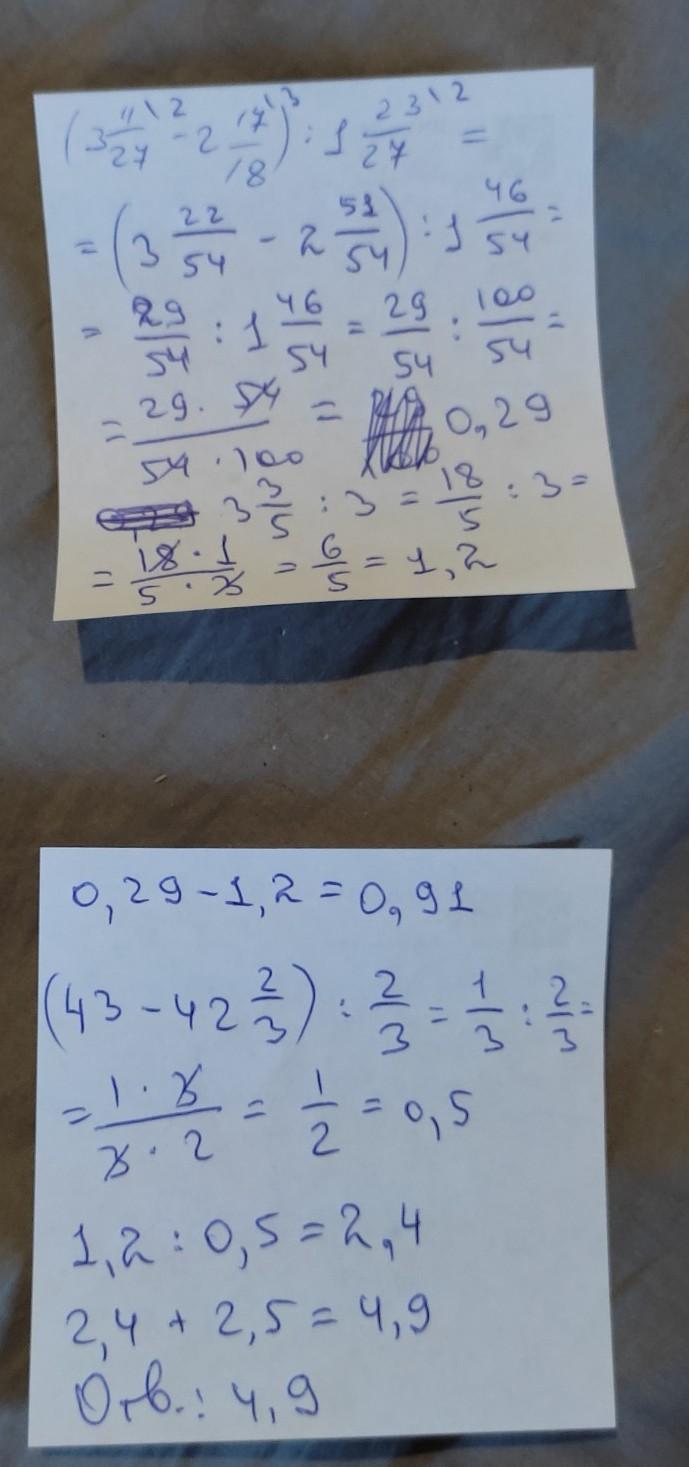 (3 11\2/27 - 2 17\3/18) : 1 23\2/27 =
= (3 22/54 - 2 51/54) : 1 46/54 =
= 29/54 : 1 46/54 = 29/54 : 100/54 =
= 29 · 54/54 · 100 = 0,29
3 3/5 : 3 = 18/5 : 3 =
= 18 · 1/5 · 3 = 6/5 = 1,2
0,29 - 1,2 = 0,91
(43 - 42 2/3) : 2/3 = 1/3 : 2/3 =
= 1 · 3/3 · 2 = 1/2 = 0,5
1,2 : 0,5 = 2,4
2,4 + 2,5 = 4,9
Отв.: 4,9